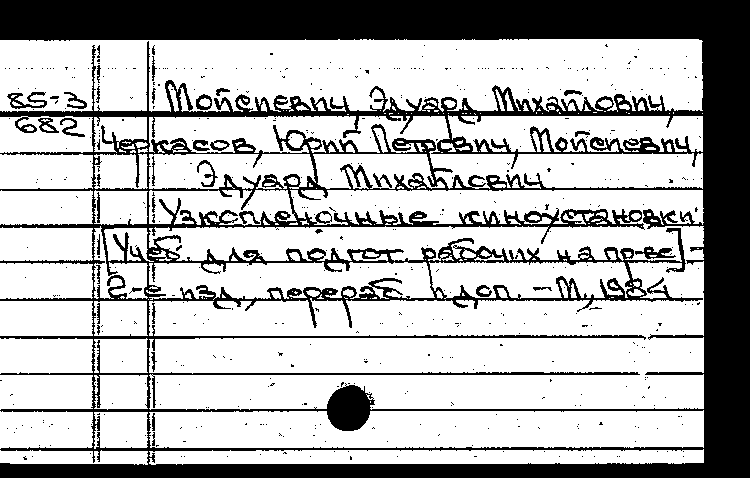 85-3
682
Мойсеевич, Эдуард Михайлович,
Черкасов, Юрий Петрович, Мойсеевич,
Эдуард Михайлович.
Узкопленочные киноустановки:
[Учеб. для подгот. рабочих на пр-ве] -
2-е изд., перераб. и доп. - М., 1984